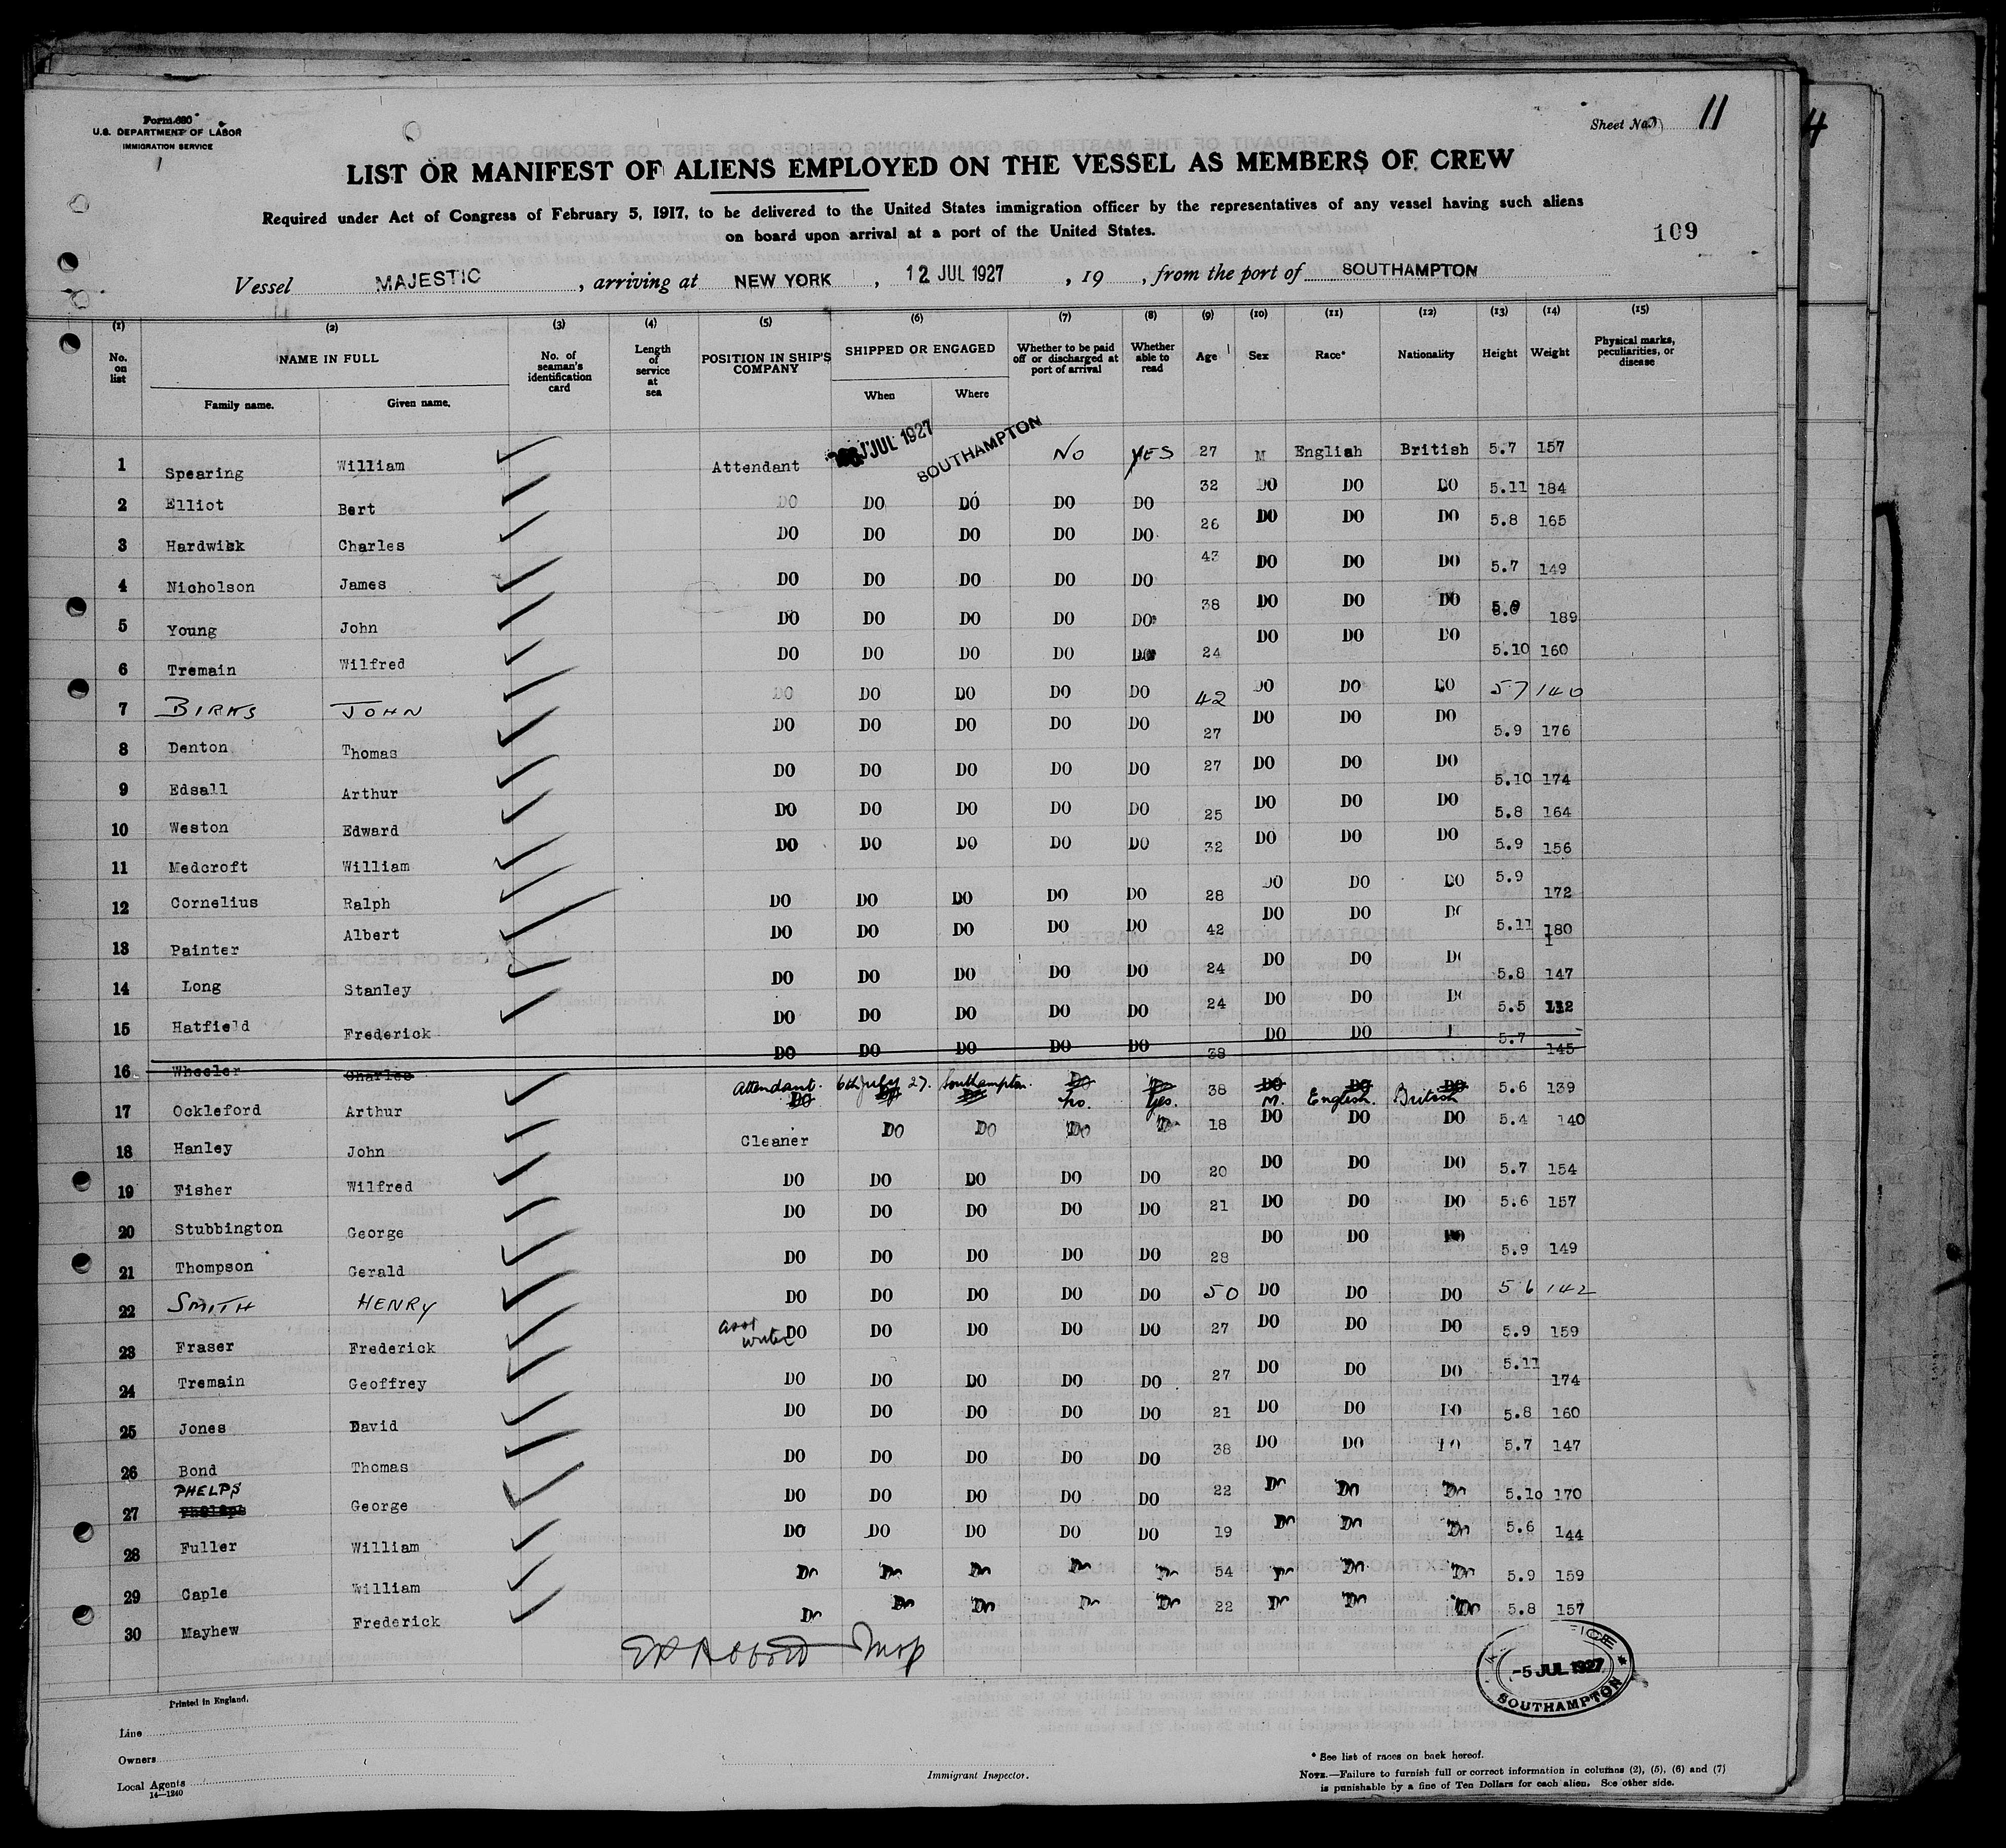 Form 680
U.S. DEPARTMENT OF LABOR
IMMIGRATION SERVICE
Sheet No. 11
LIST OR MANIFEST OF ALIENS EMPLOYED ON THE VESSEL AS MEMBERS OF CREW
Required under Act of Congress of February 5, 1917, to be delivered to the United States immigration officer by the representatives of any vessel having such aliens
on board upon arrival at a port of the United States.
109
Vessel MAJESTIC, arriving at NEW YORK, 12 JUL 1927, 19, from the port of SOUTHAMPTON
(1) (2) (3) (4) (5) (6) (7) (8) (9) (10) (11) (12) (13) (14) (15)
No. on list NAME IN FULL No. of seaman's identification card Length of service at sea POSITION IN SHIP'S COMPANY SHIPPED OR ENGAGED Whether to be paid off or discharged at port of arrival Whether able to read Age Sex Race* Nationality Height Weight Physical marks, peculiarities, or disease
Family name. Given name. When Where
1 Spearing William Attendant JUL 1927 SOUTHAMPTON No YES 27 M English British 5.7 157
2 Elliot Bert DO DO DO DO DO 32 DO DO DO 5.11 184
3 Hardwick Charles DO DO DO DO DO 26 DO DO DO 5.8 165
4 Nicholson James DO DO DO DO DO 43 DO DO DO 5.7 149
5 Young John DO DO DO DO DO 38 DO DO DO 189
6 Tremain Wilfred DO DO DO DO DO 24 DO DO DO 5.10 160
7 BIRKS JOHN DO DO DO DO DO 42 DO DO DO 5 7 140
8 Denton Thomas DO DO DO DO DO 27 DO DO DO 5.9 176
9 Edsall Arthur DO DO DO DO DO 27 DO DO DO 5.10 174
10 Weston Edward DO DO DO DO DO 25 DO DO DO 5.8 164
11 Medcroft William DO DO DO DO DO 32 DO DO DO 5.9 156
12 Cornelius Ralph DO DO DO DO DO 28 DO DO DO 5.9 172
13 Painter Albert DO DO DO DO DO 42 DO DO DO 5.11 180
14 Long Stanley DO DO DO DO DO 24 DO DO DO 5.8 147
15 Hatfield Frederick DO DO DO DO DO 24 DO DO DO 5.5 112
16 Wheeler Charles DO DO DO DO DO 38 DO DO 5.7 145
17 Ockleford Arthur Attendant. 6th July 27. Southampton. No. Yes. 38 M. English. British 5.6 139
18 Hanley John Cleaner DO DO DO DO 18 DO DO DO 5.4 140
19 Fisher Wilfred DO DO DO DO DO 20 DO DO DO 5.7 154
20 Stubbington George DO DO DO DO DO 21 DO DO DO 5.6 157
21 Thompson Gerald DO DO DO DO DO 28 DO DO DO 5.9 149
22 SMITH HENRY DO DO DO DO DO 50 DO DO DO 5 6 142
23 Fraser Frederick asst writer DO DO DO DO DO 27 DO DO DO 5.9 159
24 Tremain Geoffrey DO DO DO DO DO 27 DO DO DO 5.11 174
25 Jones David DO DO DO DO DO 21 DO DO DO 5.8 160
26 Bond Thomas DO DO DO DO DO 38 DO DO DO 5.7 147
27 PHELPS George DO DO DO DO DO 22 Do Do Do 5.10 170
28 Fuller William DO DO DO DO DO 19 Do Do Do 5.6 144
29 Caple William Do Do Do Do Do 54 Do Do Do 5.9 159
30 Mayhew Frederick Do Do Do Do Do 22 Do Do Do 5.8 157
-5 JUL 1927
SOUTHAMPTON
Printed in England.
Line
Owners
Local Agents
14—1240
Immigrant Inspector.
* See list of races on back hereof.
NOTE.—Failure to furnish full or correct information in columns (2), (5), (6) and (7)
is punishable by a fine of Ten Dollars for each alien. See other side.